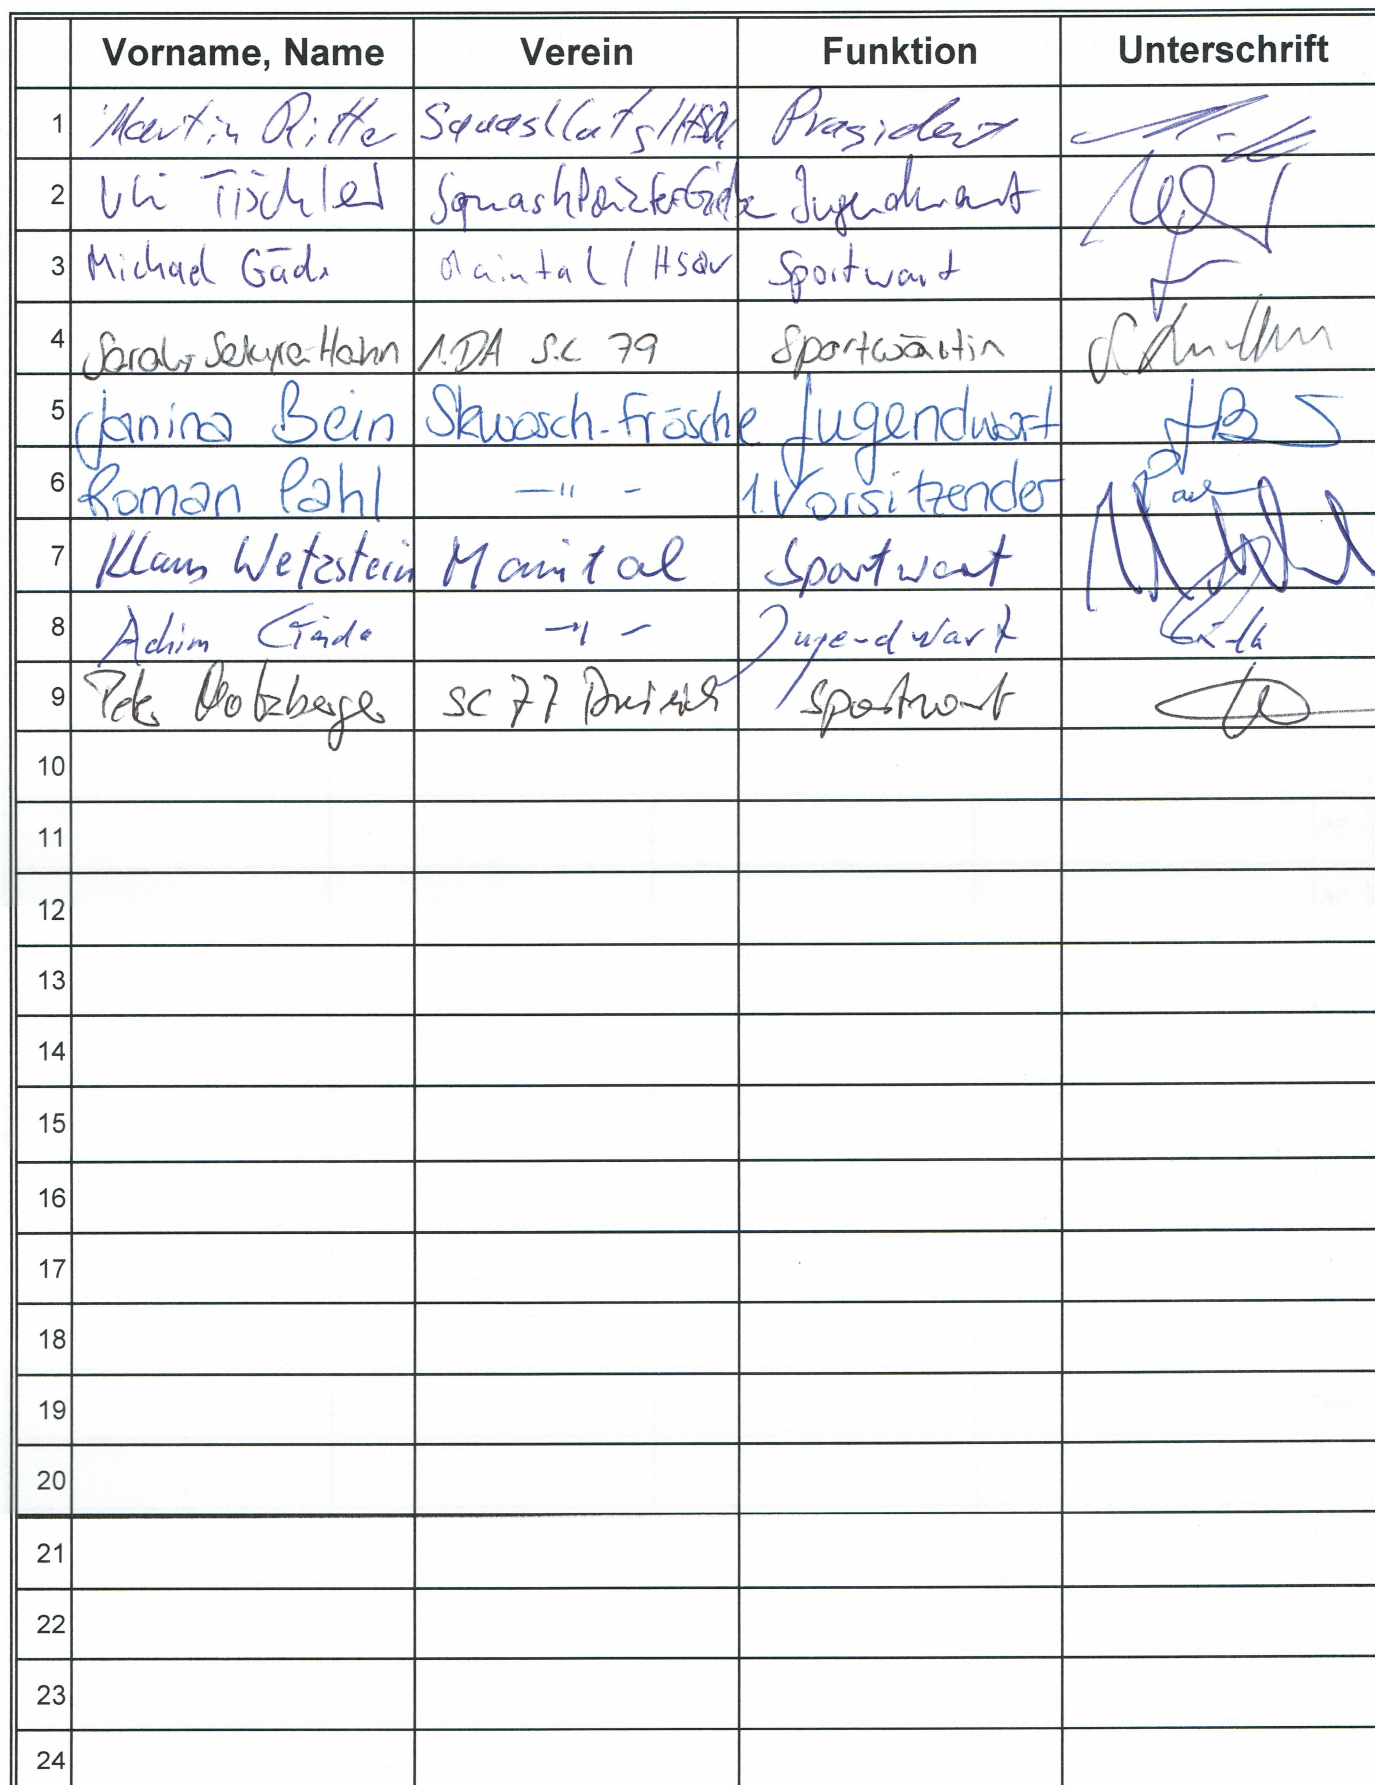 Vorname, Name Verein Funktion Unterschrift
1 Martin Ritter Squash Cats / HSQV Präsident
2 Uli Tischler Jugendwart
3 Michael Gäde Maintal / HSQV Sportwart
4 Sarah 1.DA S.C 79 Sportwärtin
5 Janina Bein Skwosch-Frösche Jugendwart
6 Roman Pahl —"— 1. Vorsitzender
7 Klaus Wetzstein Maintal Sportwart
8 Achim Gäde —"— Jugendwart
9 SC 77 Dreieich Sportwart
10
11
12
13
14
15
16
17
18
19
20
21
22
23
24